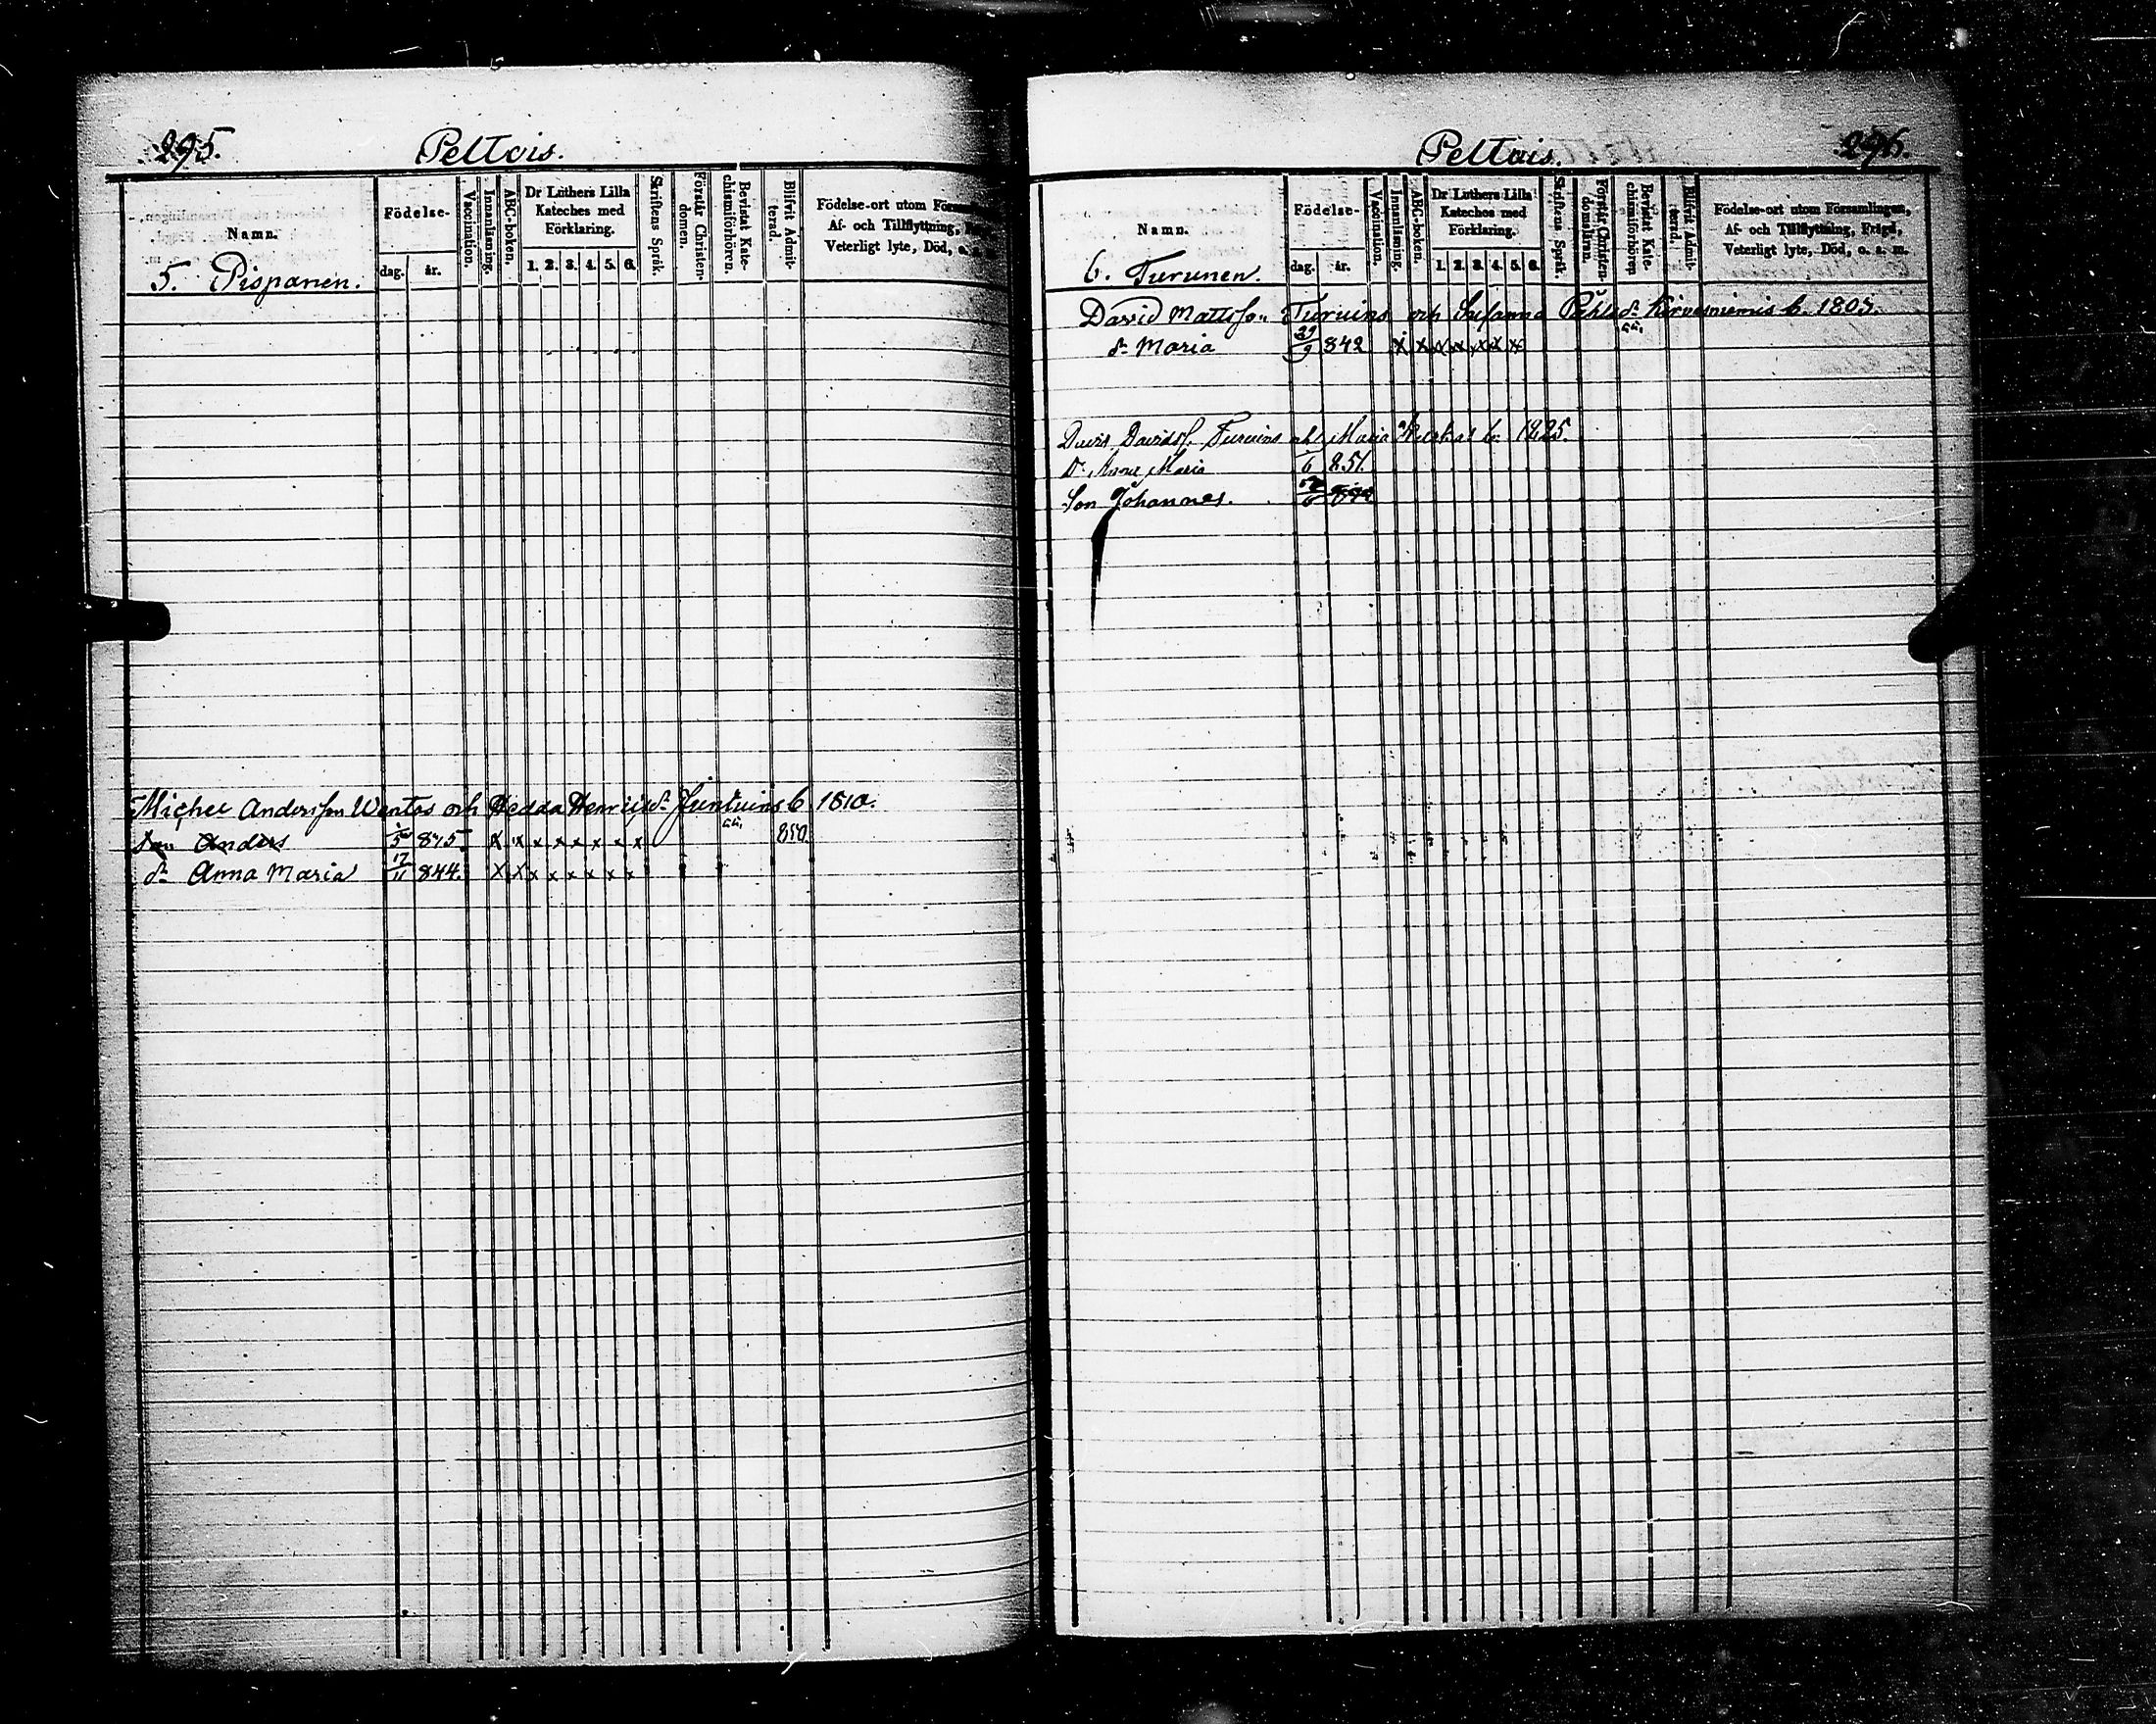 295.
Peltois.
Namn.
Födelse-
dag. år.
Vaccination.
Innanläsning.
ABC-boken.
Dr Luthers Lilla
Kateches med
Förklaring.
1. 2. 3. 4. 5. 6.
Skriftens Språk.
Förstår Christen-
domen.
Bevistat Kate-
chismiförhören.
Blifvit Admit-
terad.
Födelse-ort utom
Af- och Tillflyttning,
Veterligt lyte, Död, o. a. m
5. Pispanen.
Michel Andersson Wentos och Hedda Henrics dr b 1810.
Son Anders 845 x x x x x x x x 850
dr Anna Maria 17/11 844. x x x x x x x x
Peltois.
296.
Namn.
Födelse-
dag. år.
Vaccination.
Innanläsning.
ABC-boken.
Dr Luthers Lilla
Kateches med
Förklaring.
1. 2. 3. 4. 5. 6.
Skriftens Språk.
Förstår Christen-
domsläran.
Bevistat Kate-
chismiförhören
Blifvit Admit-
terad.
Födelse-ort utom Församlingen,
Af- och Tillflyttning, Frägd,
Veterligt lyte, Död, o. a. m.
6. Turunen.
David Mattsson Turuins och Susanna Påhls dr Hirvesniemis b. 1805.
dr Maria 29/9 842 x x x x x x x
David Davidss. Turuins och Maria b. 1825.
Dr Anna Maria 6 851.
Son Johannes.